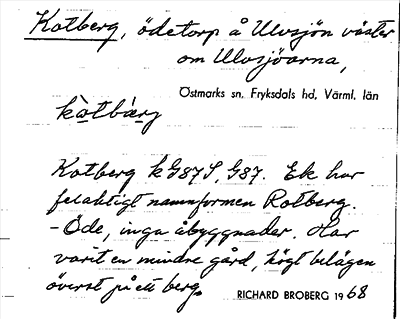 Kotberg, ödetorp å Ulvsjön väster
om Ulvsjöarna,
Östmarks sn, Fryksdals hd, Värml. län
kòtbàrg
Kotberg kG87S, G87. Ek har
felaktigt namnformen Rotberg.
- Öde, inga åbyggnader. Har
varit en mindre gård, högt belägen
överst på ett berg.
RICHARD BROBERG 1968